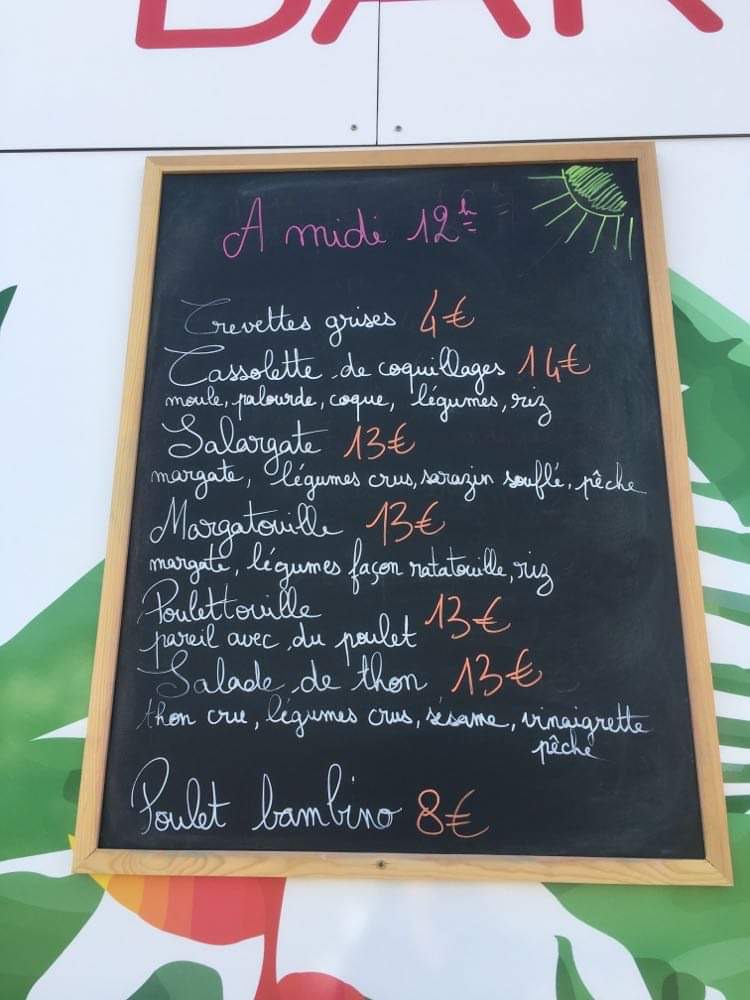 BAR
A midi 12h
Crevettes grises 4€
Cassolette de coquillages 14€
moule, palourde, coque, légumes, riz
Salargate 13€
margate, légumes crus, sarazin souflé, pêche
Margatouille 13€
margate, légumes façon ratatouille, riz
Poulettouille 13€
pareil avec du poulet
Salade de thon 13€
thon cru, légumes crus, sésame, vinaigrette
pêche
Poulet bambino 8€